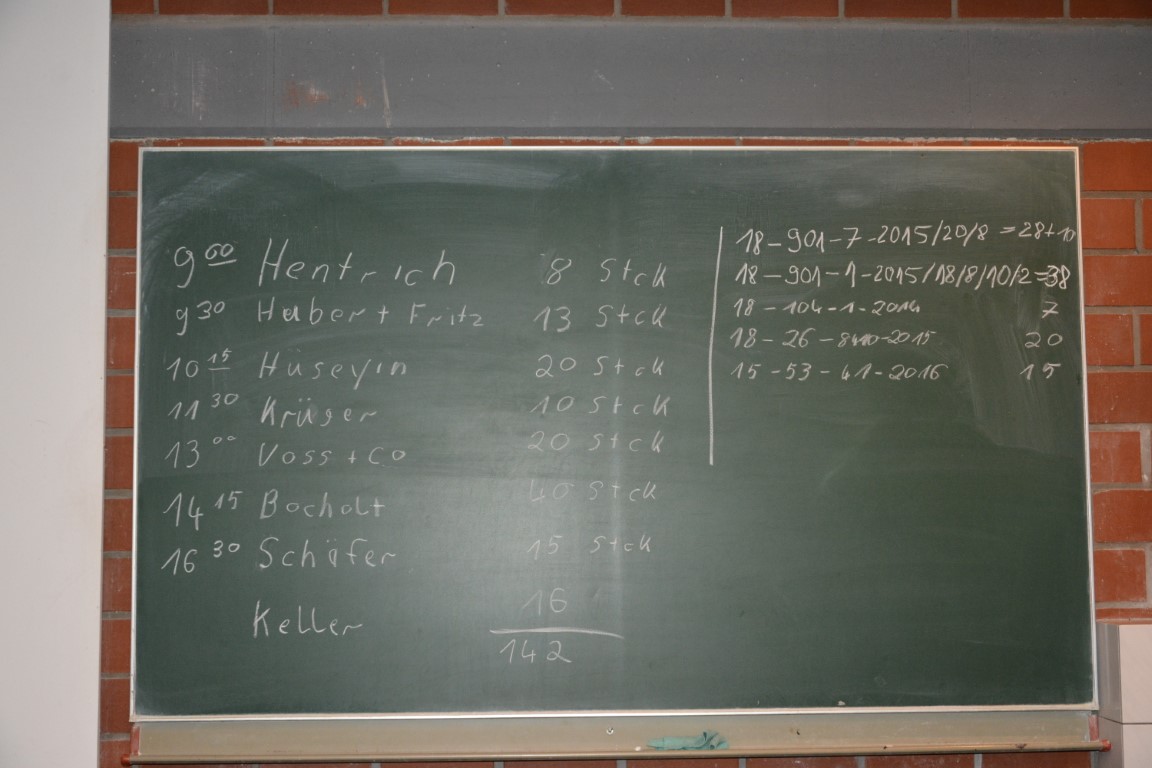 9 00 Hentrich 8 Stck
9 30 Hubert Fritz 13 Stck
10 15 Hüseyin 20 Stck
11 30 Krüger 10 Stck
13 00 Voss + Co 20 Stck
14 15 Bocholt 40 Stck
16 30 Schäfer 15 Stck
Keller 16
142
18-901-7-2015/20/8 = 28+10
18-901-1-2015/18/8/10/2=38
18-104-1-2014 7
18-26- 20
15-53-41-2016 15